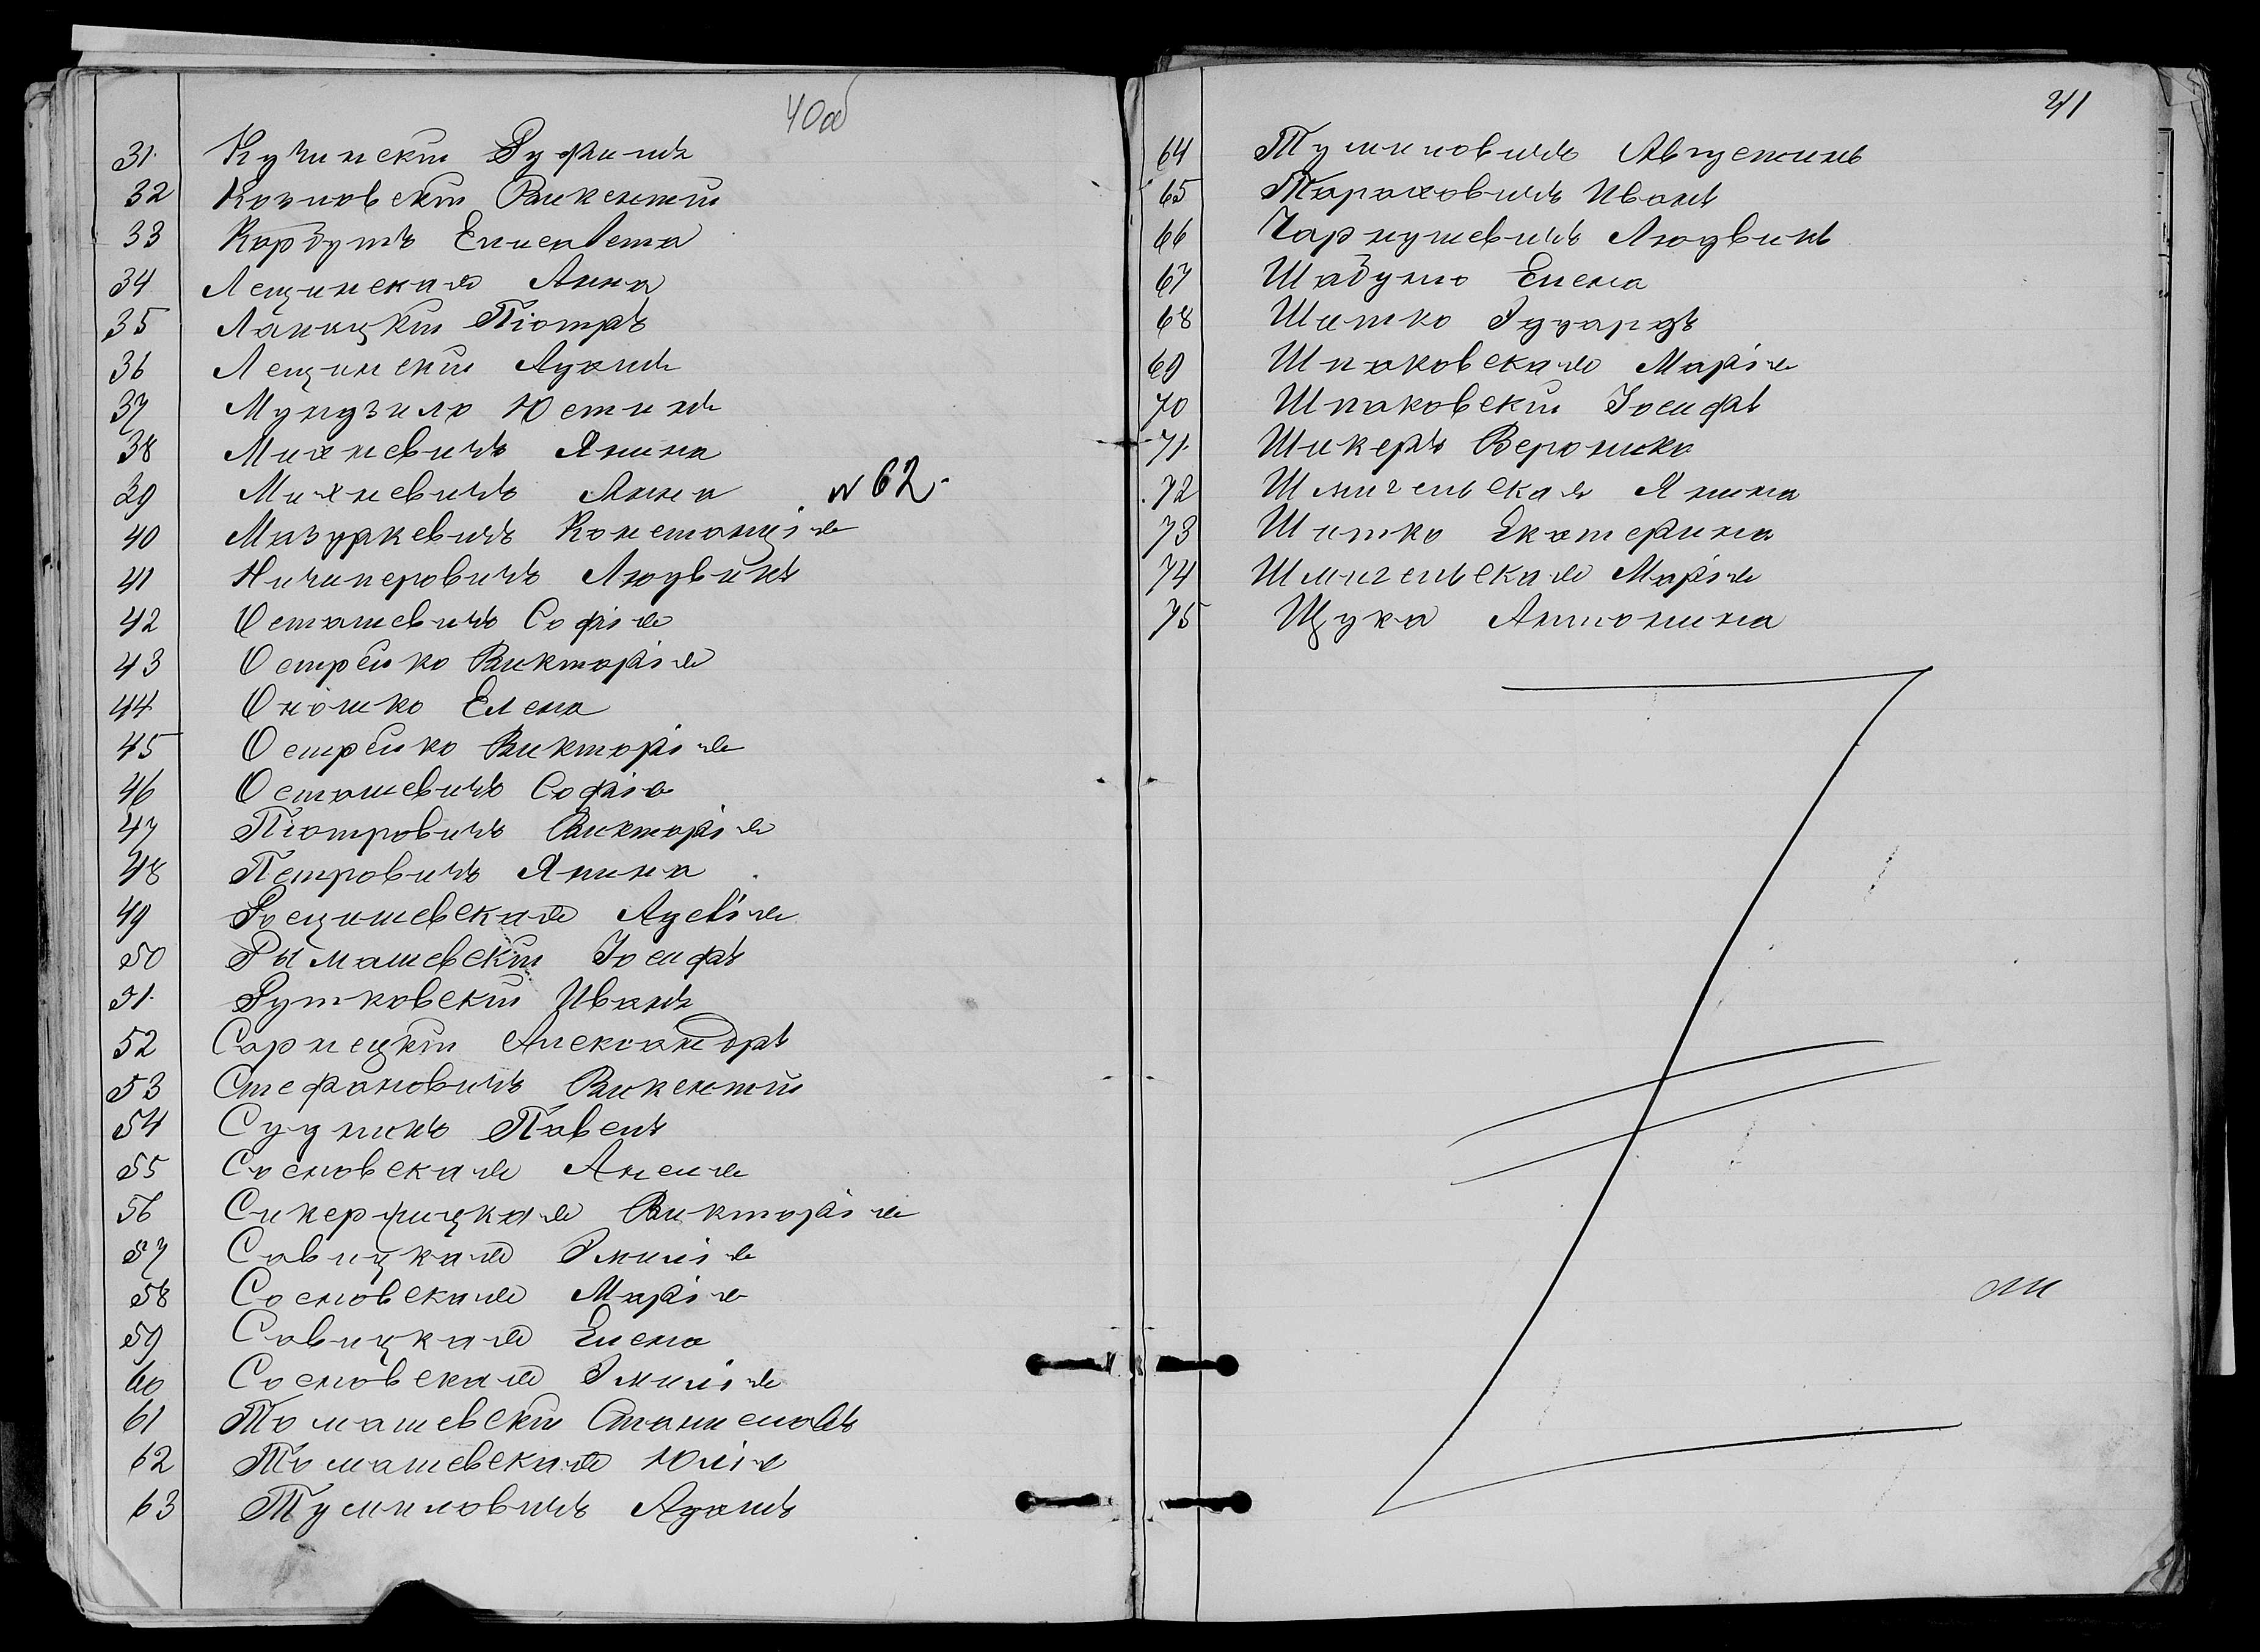 40об
31. Кучинскій Руфинъ
32 Козловскій Викентій
33 Карбутъ Елисавета
34 Лещинская Анна
35 Ланицкій Піотръ
36 Лещинскій Адамъ
37 Мундзило Юстинъ
38 Михневичъ Янина
39 Михневичъ Анна N 62.
40 Мазуркевичъ Констанція
41 Ничипоровичъ Людвикъ
42 Осташевичъ Софія
43 Острейко Викторія
44 Оношко Елена
45 Острейко Викторія
46 Осташевичъ Софія
47 Піотровичъ Викторія
48 Петровичъ Янина
49 Росцишевская Ядвія
50 Рымашевскій Іосифъ
51. Рутковскій Иванъ
52 Сарнецкій Александръ
53 Стефановичъ Викентій
54 Судникъ Павелъ
55 Сосновская Анеля
56 Сикержицкая Викторія
57 Савицкая Эмилія
58 Сосновская Марія
59 Савицкая Елена
60 Сосновская Эмилія
61 Томашевскій Станиславъ
62 Томашевская Юлія
63 Тумиловичъ Адамъ
41
64 Тумиловичъ Августинъ
65 Тараховичъ Иванъ
66 Чарнушевичъ Людвикъ
67 Шабуню Елена
68 Шитко Эдуардъ
69 Шпаковская Марія
70 Шпаковскій Іосифъ
71. Шикеръ Вероника
72 Шмигельская Янина
73 Шитко Екатерина
74 Шмигельская Марія
75 Щука Антонина